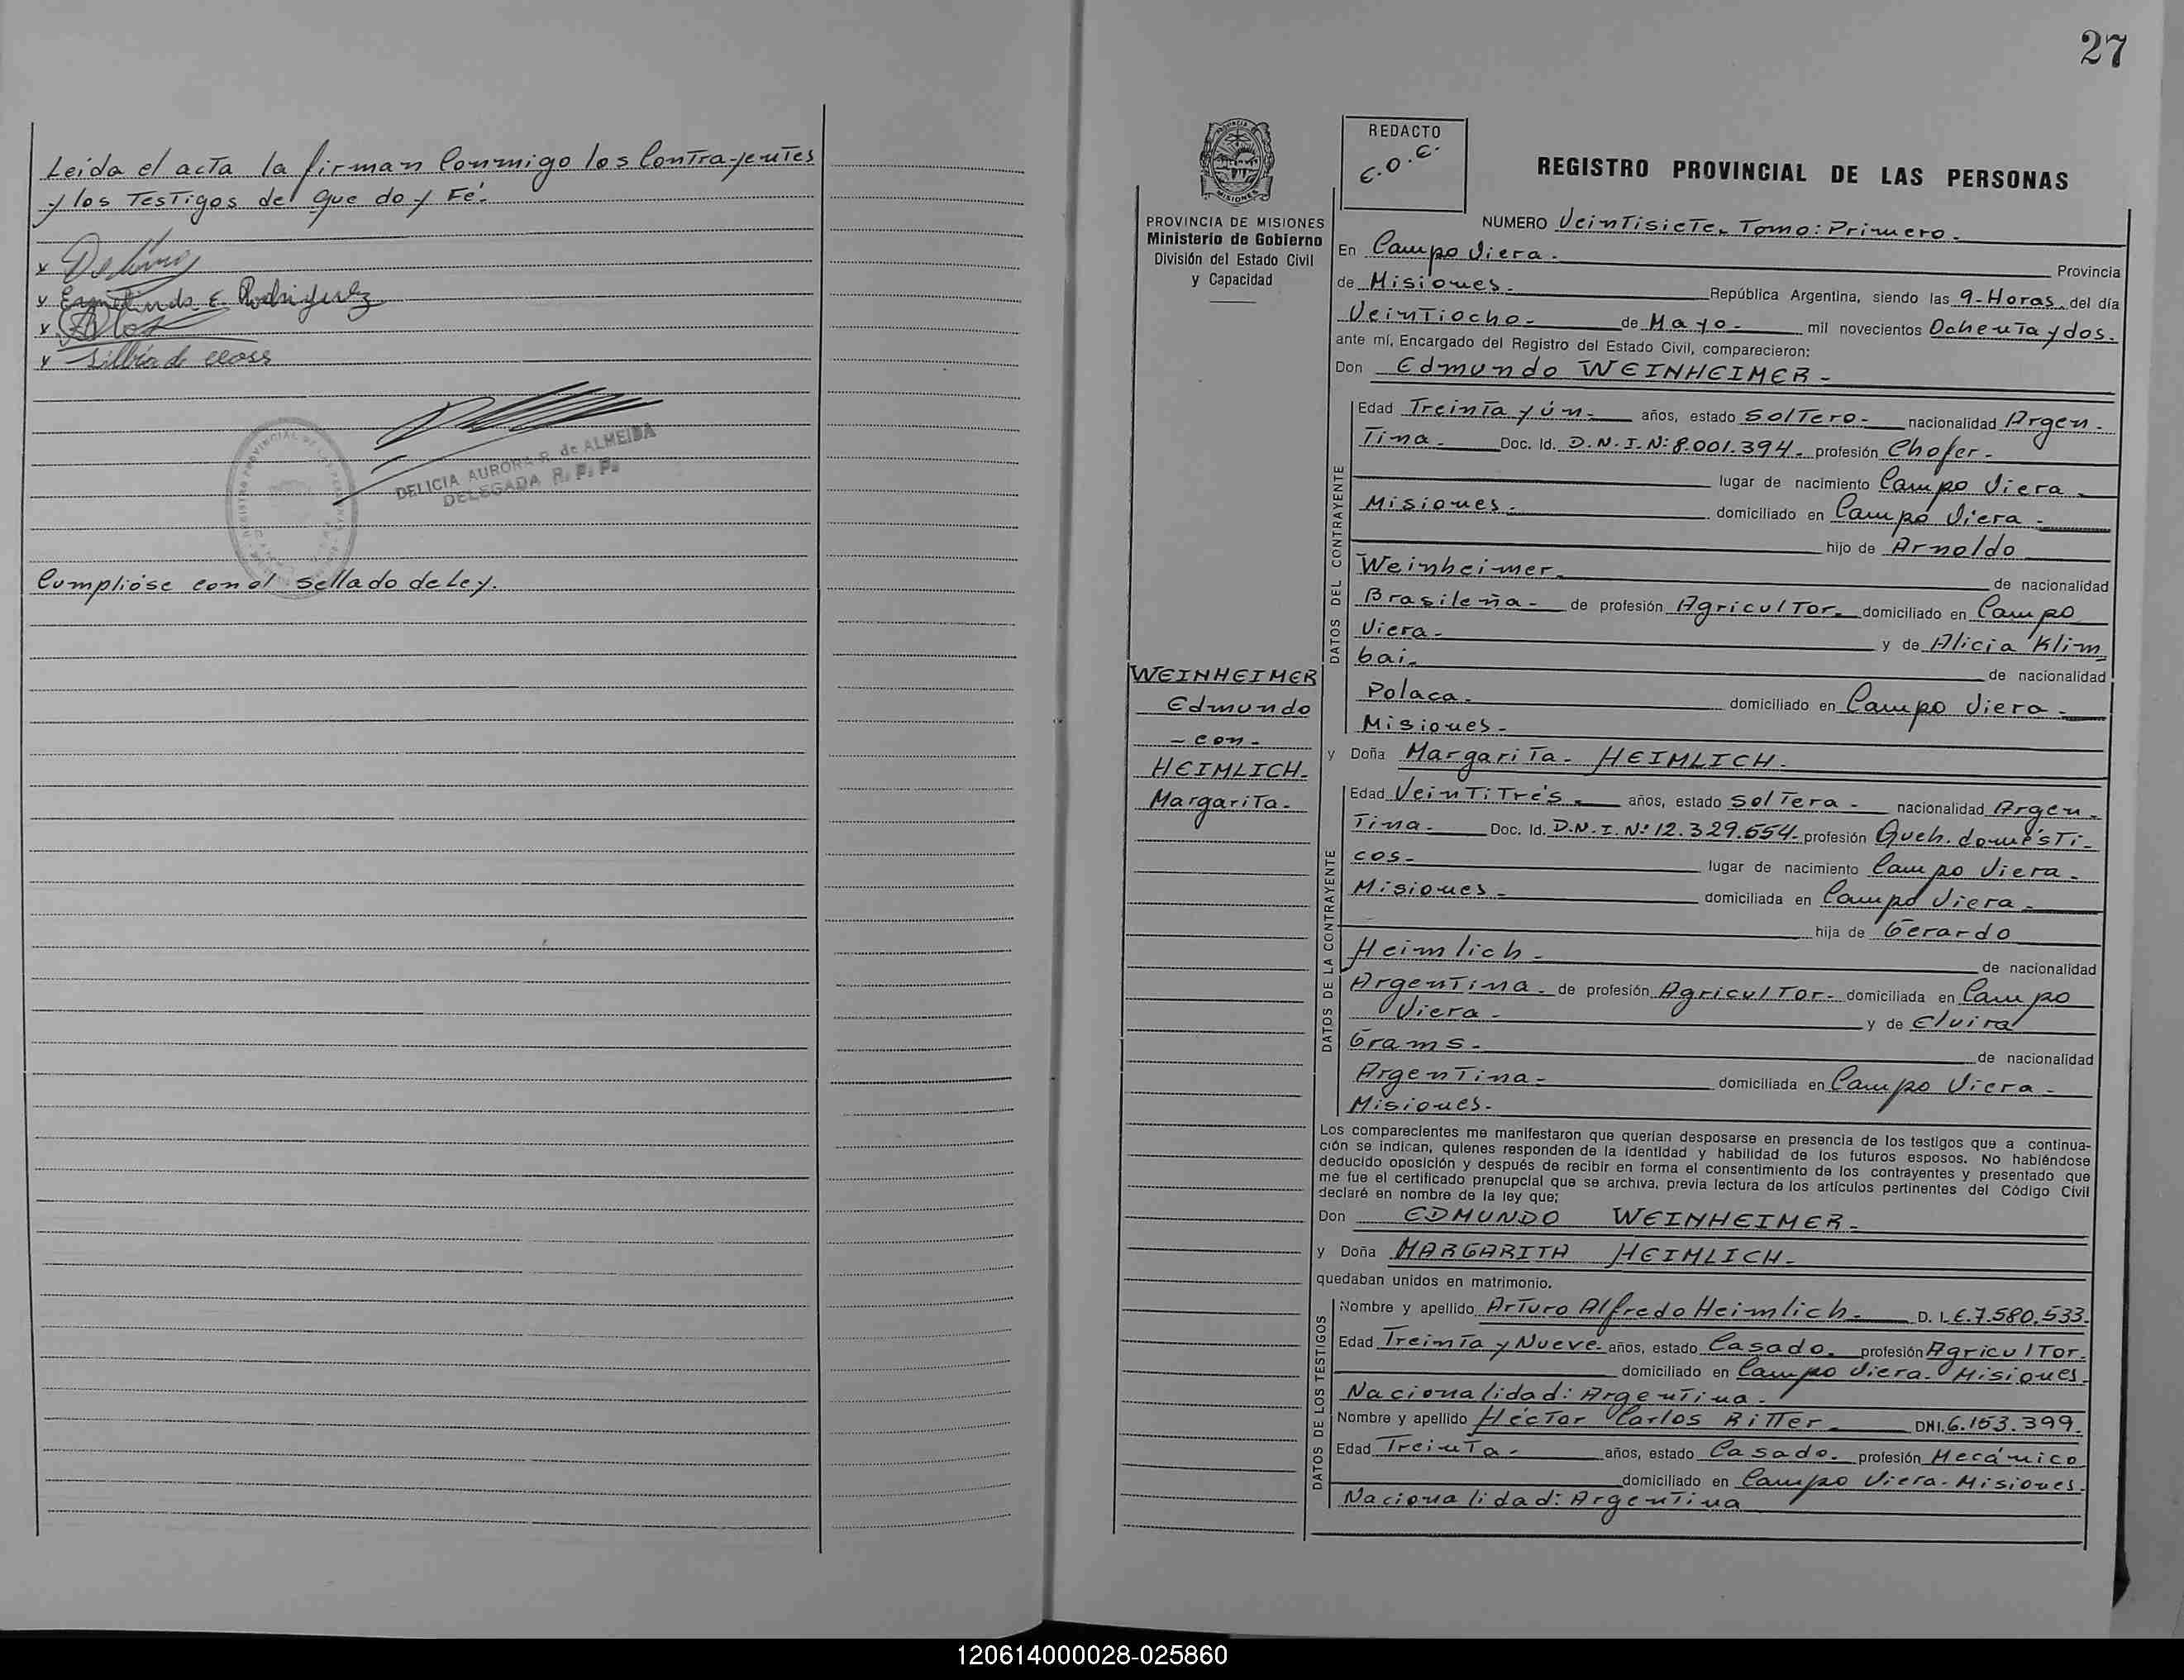 Leída el acta la firman Conmigo los Contrayentes
y los Testigos del que doy Fé.
x
x E. Rodriguez
x
x Silbia de Closs
DELICIA AURORA R. de ALMEIDA
DELEGADA R. P. P.
Cumplióse con el sellado de Ley.
27
PROVINCIA DE MISIONES
Ministerio de Gobierno
División del Estado Civil
y Capacidad
REDACTO
C.O.C.
REGISTRO PROVINCIAL DE LAS PERSONAS
NUMERO Veintisiete. Tomo: Primero.
En Campo Viera. Provincia
de Misiones. República Argentina, siendo las 9-Horas del día
Veintiocho- de Mayo- mil novecientos Ochenta y dos.
ante mí, Encargado del Registro del Estado Civil, comparecieron:
Don Edmundo WEINHEIMER-
DATOS DEL CONTRAYENTE
Edad Treinta y ún- años, estado Soltero- nacionalidad Argen-
tina- Doc. Id. D.N.I.N: 8.001.394. profesión Chofer-
lugar de nacimiento Campo Viera-
Misiones- domiciliado en Campo Viera-
hijo de Arnoldo
Weinheimer- de nacionalidad
Brasileña- de profesión Agricultor. domiciliado en Campo
Viera- y de Alicia Klim
bai- de nacionalidad
Polaca- domiciliado en Campo Viera-
Misiones-
WEINHEIMER
Edmundo
-con-
HEIMLICH-
Margarita-
y Doña Margarita- HEIMLICH-
DATOS DE LA CONTRAYENTE
Edad Veintitrés- años, estado Soltera- nacionalidad Argen-
tina- Doc. Id. D.N.I.N: 12.329.554- profesión Queh. domésti-
cos- lugar de nacimiento Campo Viera-
Misiones- domiciliada en Campo Viera-
hija de Gerardo
Heimlich- de nacionalidad
Argentina- de profesión Agricultor- domiciliada en Campo
Viera- y de Elvira
Grams- de nacionalidad
Argentina- domiciliada en Campo Viera-
Misiones-
Los comparecientes me manifestaron que querían desposarse en presencia de los testigos que a continua-
ción se indican, quienes responden de la identidad y habilidad de los futuros esposos. No habiéndose
deducido oposición y después de recibir en forma el consentimiento de los contrayentes y presentado que
me fue el certificado prenupcial que se archiva, previa lectura de los artículos pertinentes del Código Civil
declaré en nombre de la ley que;
Don EDMUNDO WEINHEIMER-
y Doña MARGARITA HEIMLICH-
quedaban unidos en matrimonio.
DATOS DE LOS TESTIGOS
Nombre y apellido Arturo Alfredo Heimlich- D. I. E. 7.580.533-
Edad Treinta y Nueve- años, estado Casado- profesión Agricultor-
domiciliado en Campo Viera- Misiones-
Nacionalidad: Argentina-
Nombre y apellido Héctor Carlos Ritter- DNI. 6.153.399.
Edad Treinta- años, estado Casado- profesión Mecánico
domiciliado en Campo Viera- Misiones-
Nacionalidad: Argentina
120614000028-025860